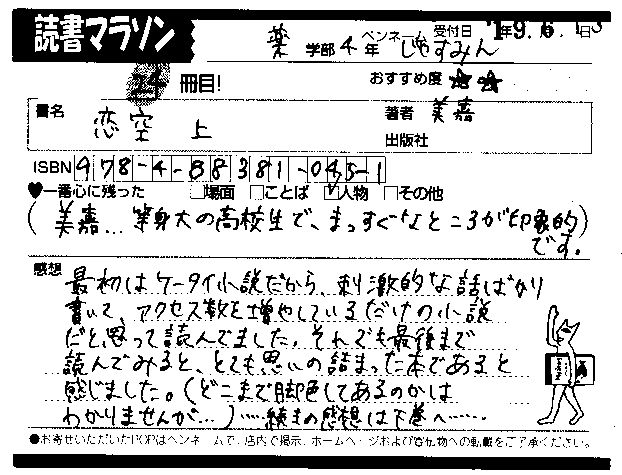 読書マラソン
薬 学部 4 年 ペンネーム じゃすみん 受付日 '19年 6.
冊目! おすすめ度 ★ ★
書名 恋空 上 著者 美嘉
出版社
ISBN 978-4-88381-045-1
♥一番心に残った □場面 □ことば ☑人物 □その他
(美嘉…等身大の高校生で、まっすぐなところが印象的)
です。
感想
最初はケータイ小説だから、刺激的な話ばかり
書いて、アクセス数を増やしているだけの小説
だと思って読んでました。それでも最後まで
読んでみると、とても思いの詰まった本であると
感じました。(どこまで脚色してあるのかは
わかりませんが…)……続きの感想は下巻へ……
●お寄せいただいたPOPはペンネームで、店内で掲示、ホームページおよび寄せ物への転載をご了承ください。